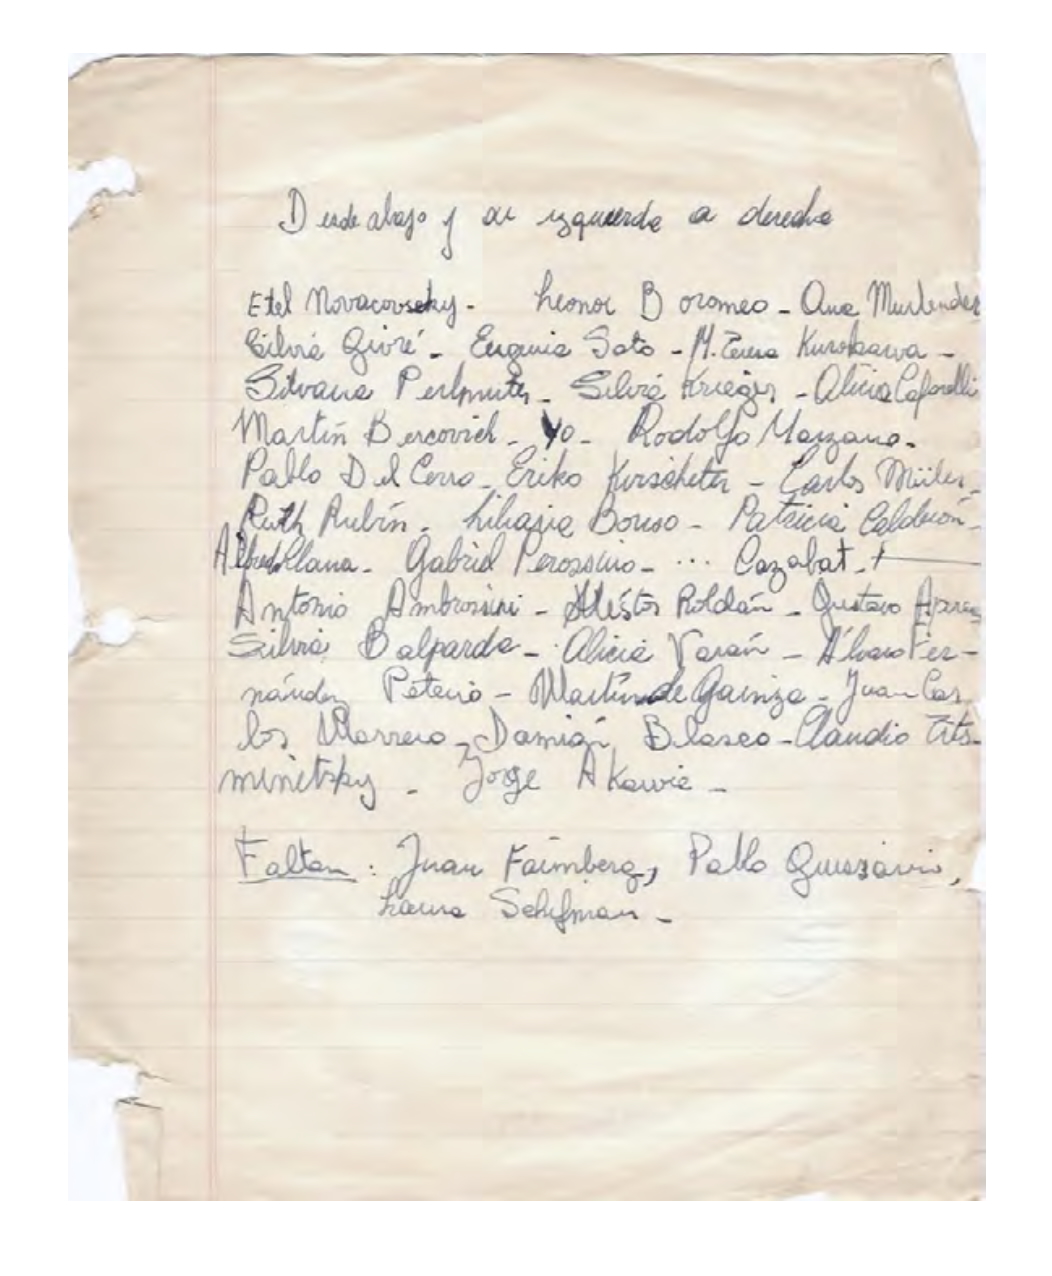 Desde abajo y de izquierda a derecha
Etel Novacovseky - Leonor Boromeo - Ana Murlender
Silvia Givré - Eugenia Soto - M. Teresa Kurokawa -
Silvana Perlmuter - Silvia Krieger - Alicia Cafarelli
Martín Bercovich - Yo - Rodolfo Manzano -
Pablo Del Cerro - Eriko - Carlos Müller -
Ruth Rubín - Liliana Bouso - Patricia Calderón -
Llana - Gabriel - ... Cazabat -
Antonio Ambrossini - Néstor Roldán - Gustavo
Silvia Balparda - Alicia Varán - Álvaro Fer-
nández Peteiro - Martín de Gainza - Juan Car
los Marrero - Damián Blasco - Claudio Tits-
minetzky - Jorge Akawie -
Faltan : Juan Faimberg, Pablo
Laura Schifman -